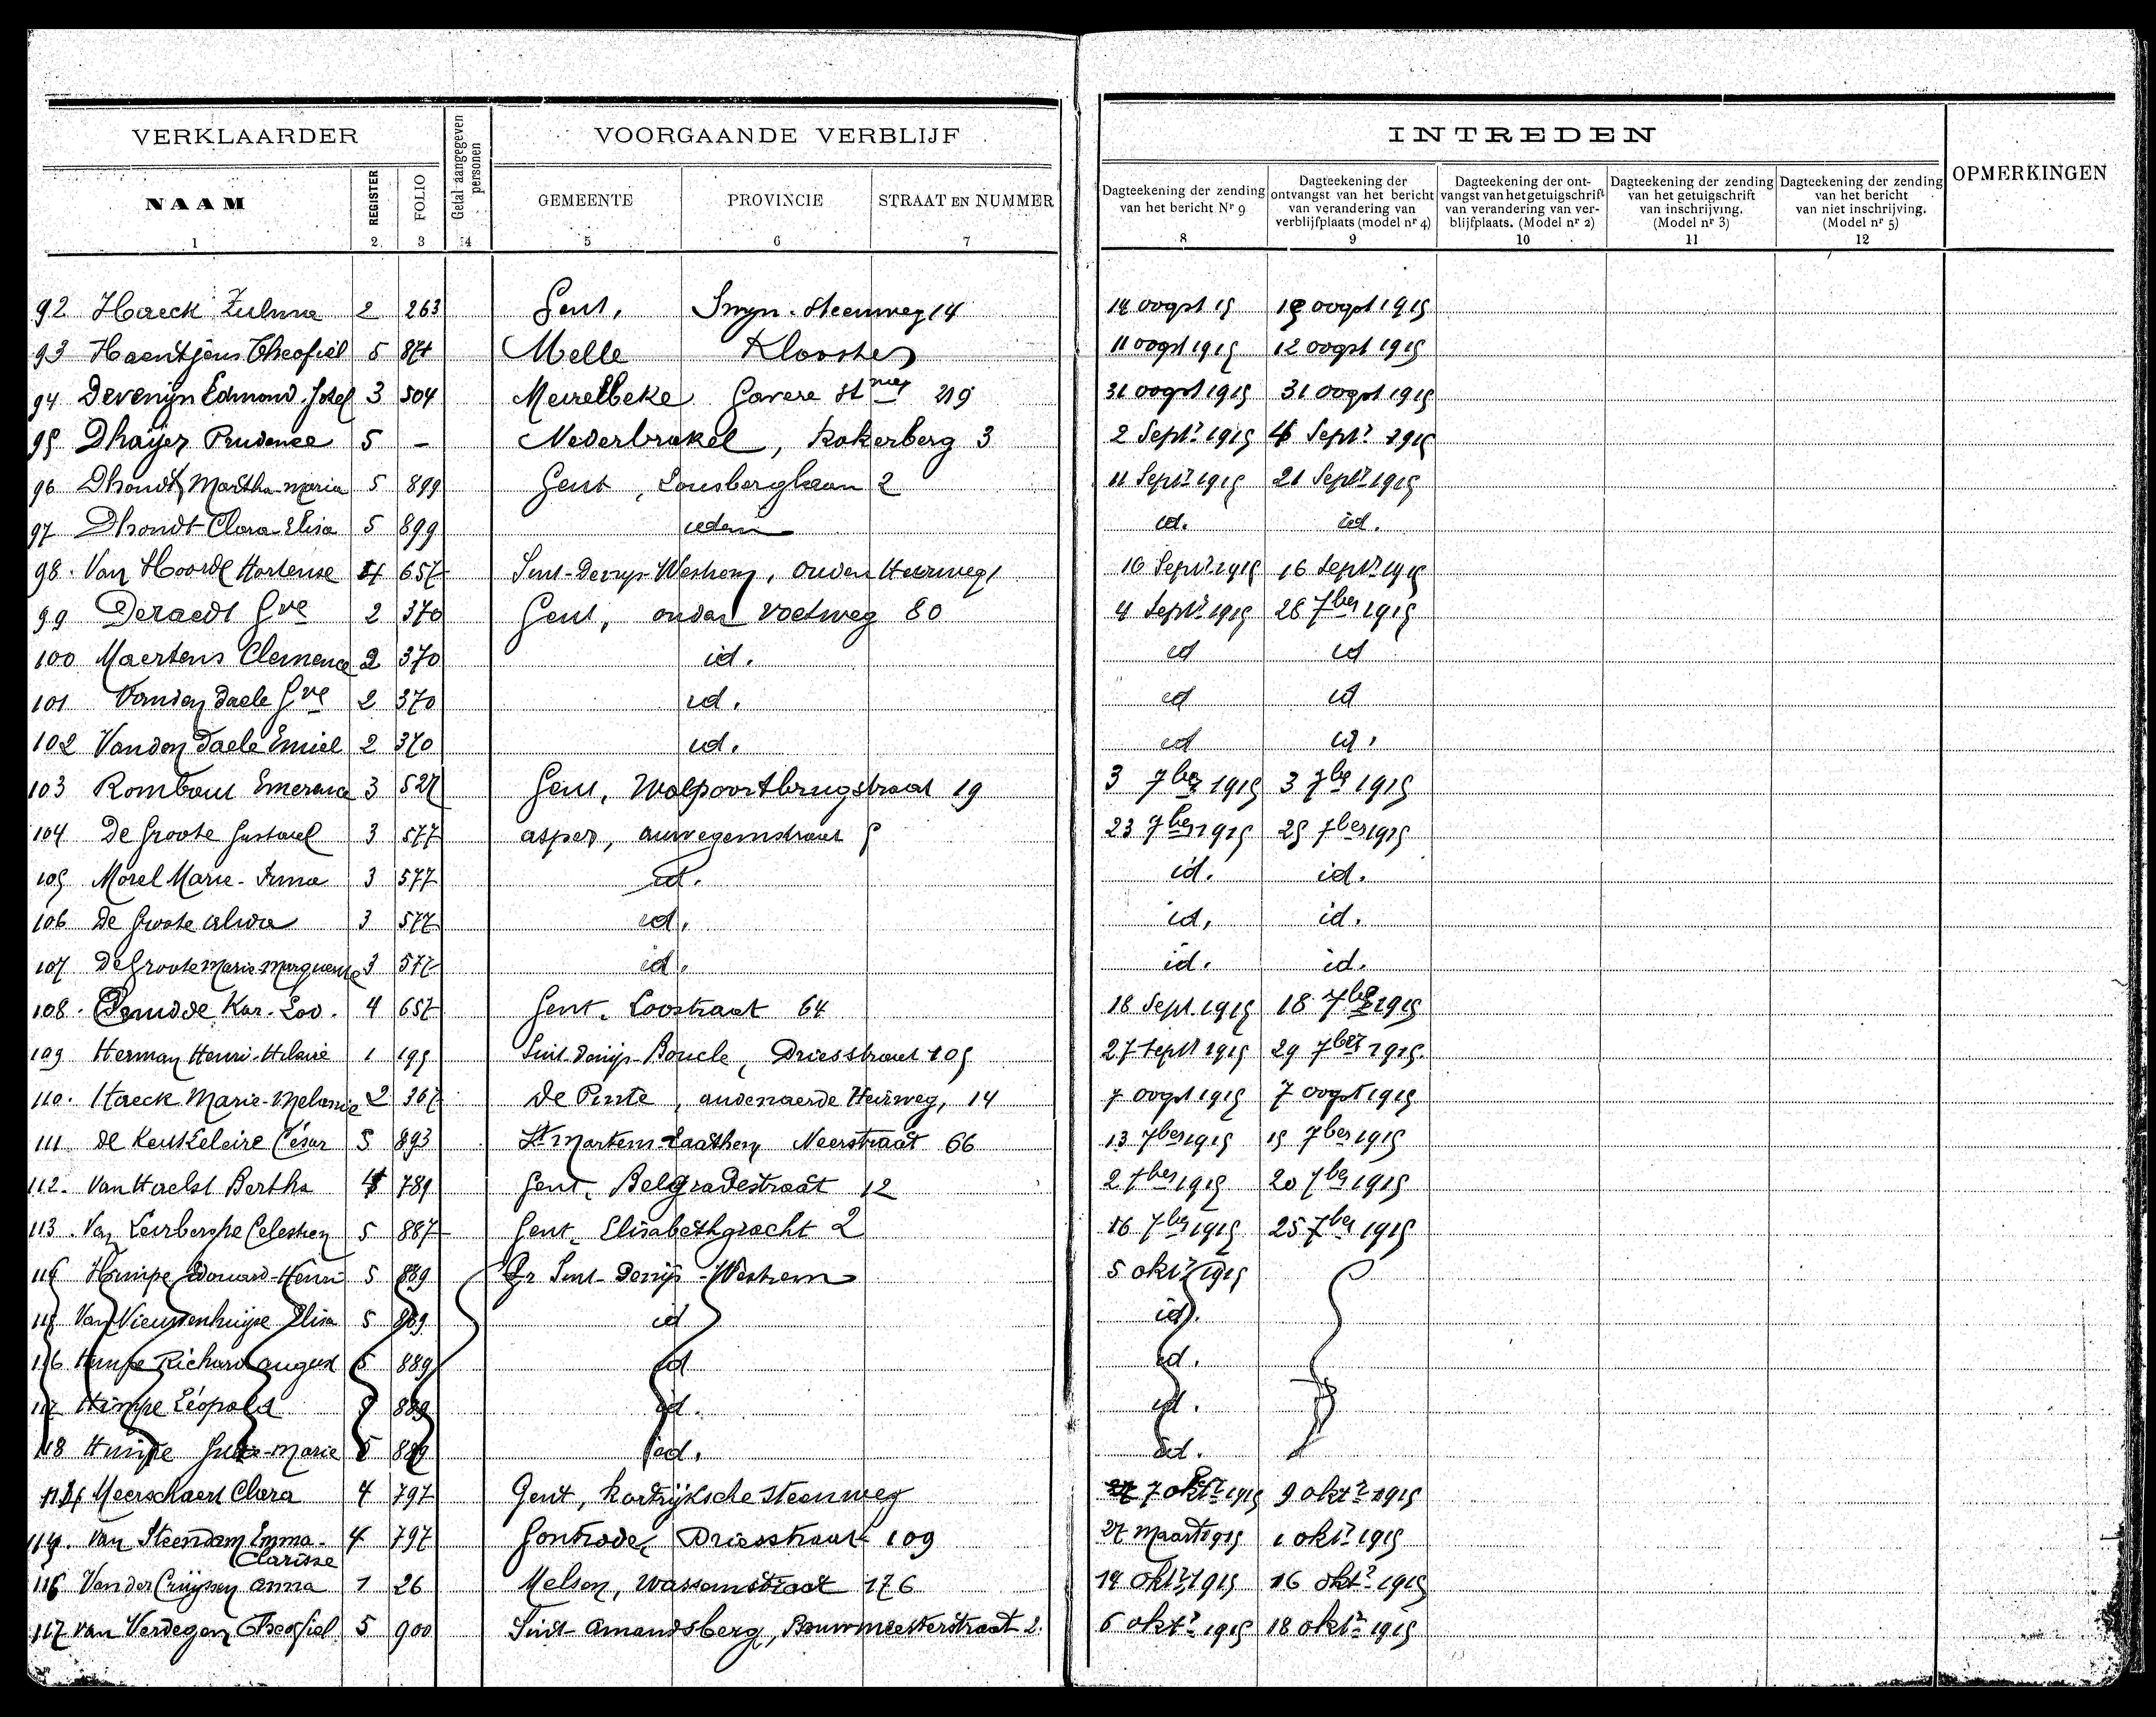 VERKLAARDER
Getal aangegeven personen
VOORGAANDE VERBLIJF
INTREDEN
OPMERKINGEN
NAAM REGISTER FOLIO GEMEENTE PROVINCIE STRAAT EN NUMMER
Dagteekening der zending van het bericht Nr 9
Dagteekening der ontvangst van het bericht van verandering van verblijfplaats (model nr 4)
Dagteekening der ontvangst van het getuigschrift van verandering van verblijfplaats. (Model nr 2)
Dagteekening der zending van het getuigschrift van inschrijving. (Model nr 3)
Dagteekening der zending van het bericht van niet inschrijving. (Model nr 5)
1 2 3 4 5 6 7 8 9 10 11 12
92 Haeck Zulma 2 263 Gent, Smyn. Steenweg 14 14 oogst 15 18 oogst 1915
93 Haentjens Theofiel 5 871 Melle Klooster 11 oogst 1915 12 oogst 1915
94 Devenijn Edmond Jozef 3 504 Meirelbeke Gavere St 219 31 oogst 1915 31 oogst 1915
95 Dhaijer Prudence 5 – Nederbrakel, Kokerberg 3 2 Septr 1915 4 Septr 1915
96 Dhondt Martha-Maria 5 899 Gent, Lousberghaan 2 11 Septr 1915 21 Septr 1915
97 Dhondt Clara-Elisa 5 899 idem id. id.
98. Van Hoorde Hortense 4 657 Sint-Denijs-Westrem, Ouden Heirweg 1 16 Septr 1915 16 Septr 1915
99 Deraedt Gve 2 370 Gent, ouden Voetweg 80 4 Septr 1915 26 7ber 1915
100 Maertens Clemence 2 370 id. id id
101 Vanden Daele Gve 2 370 id. id id
102 Vanden Daele Emiel 2 370 id. id id.
103 Rombaut Emerence 3 527 Gent, Walpoortbrugstraat 19 3 7ber 1915 3 7ber 1915
104 De Groote Gustaaf 3 577 asper, auwegemstraat 5 23 7ber 1915 25 7ber 1915
105 Morel Marie-Irma 3 577 id. id. id.
106 De Groote Alida 3 577 id. id. id.
107 De Groote Marie Marguerite 3 577 id. id. id.
108. Kar. Lod. 4 657 Gent. Loostraat 64 18 Sept 1915 18 7ber 1915
109 Herman Henri-Hilaire 1 195 Sint Denijs-Boucle, Driesstraat 105 27 Septr 1915 29 7ber 1915.
110. Haeck Marie-Melanie 2 367 De Pinte, audenaerde Heirweg, 14 7 oogst 1915 7 oogst 1915
111 de Keukeleire César 5 893 St Martens-Laathem Neerstraat 66 13 7ber 1915 15 7ber 1915
112. Van Haelst Bertha 4 789 Gent. Belgradestraat 12 2 7ber 1915 20 7ber 1915
113. Van Leirberghe Celestien 5 887 Gent. Elisabethgracht 2 16 7ber 1915 25 7ber 1915
114 Himpe Edouard-Henri 5 889 Sint-Denijs-Westrem 5 oktr 1915
115 Van Nieuwenhuijse Elisa 5 889 id id.
116 Himpe Richard august 5 889 id id.
117 Himpe Léopold 5 889 id. id.
118 Himpe Marie 5 889 id. id.
114 Meerschaert Clara 4 797 Gent, Kortrijksche Steenweg 7 oktr 1915 9 oktr 1915
115. Van Steendam Emma- 4 797 Gontrode, Driesstraat 109 27 Maart 1915 1 oktr 1915
Clarisse
116 Van der Cruijssen Anna 1 26 Melsen, Wassenstraat 176 14 oktr 1915 16 oktr 1915
117 Van Verdegem Theofiel 5 900 Sint-Amandsberg, Bouwmeesterstraat 2. 6 oktr 1915 18 oktr 1915